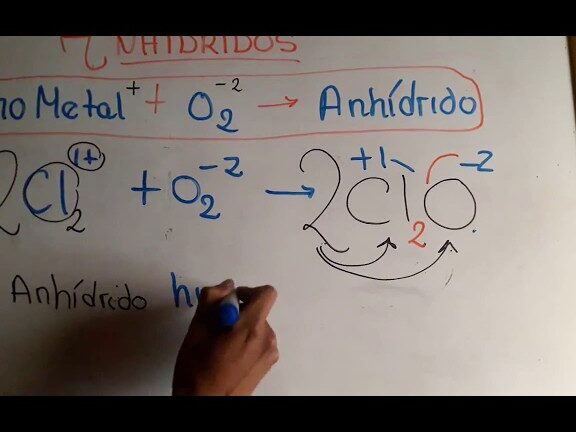 ANHÍDRIDOS
no Metal⁺ + O₂⁻² → Anhídrido
2Cl₂¹⁺ + O₂⁻² → 2Cl₂⁺¹O⁻²
Anhídrido